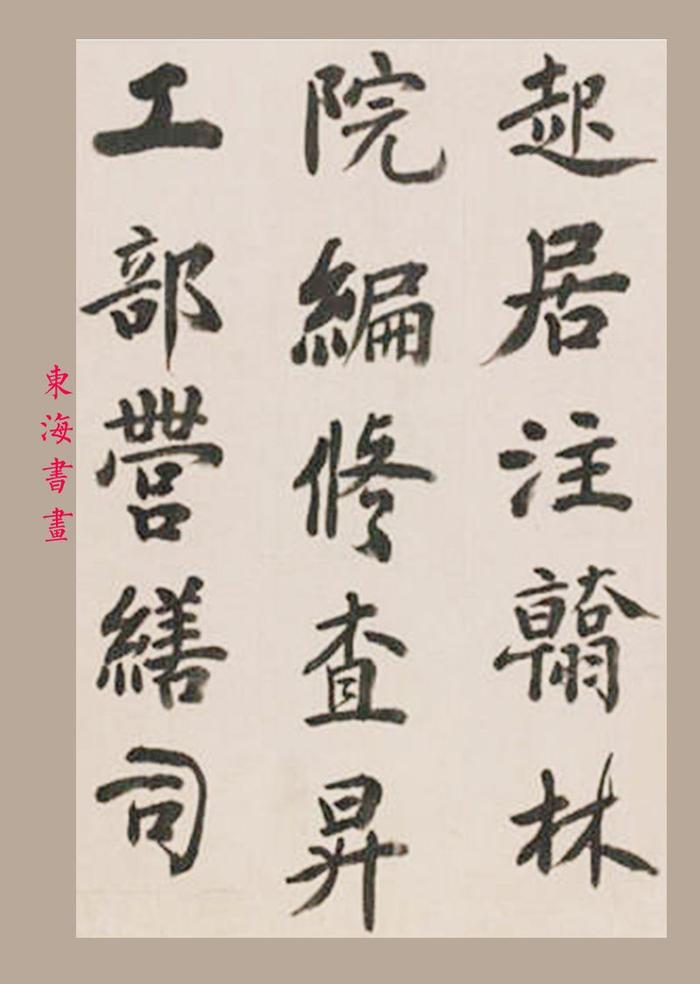 起居注翰林
院編修查昇
工部營繕司
東海書畫